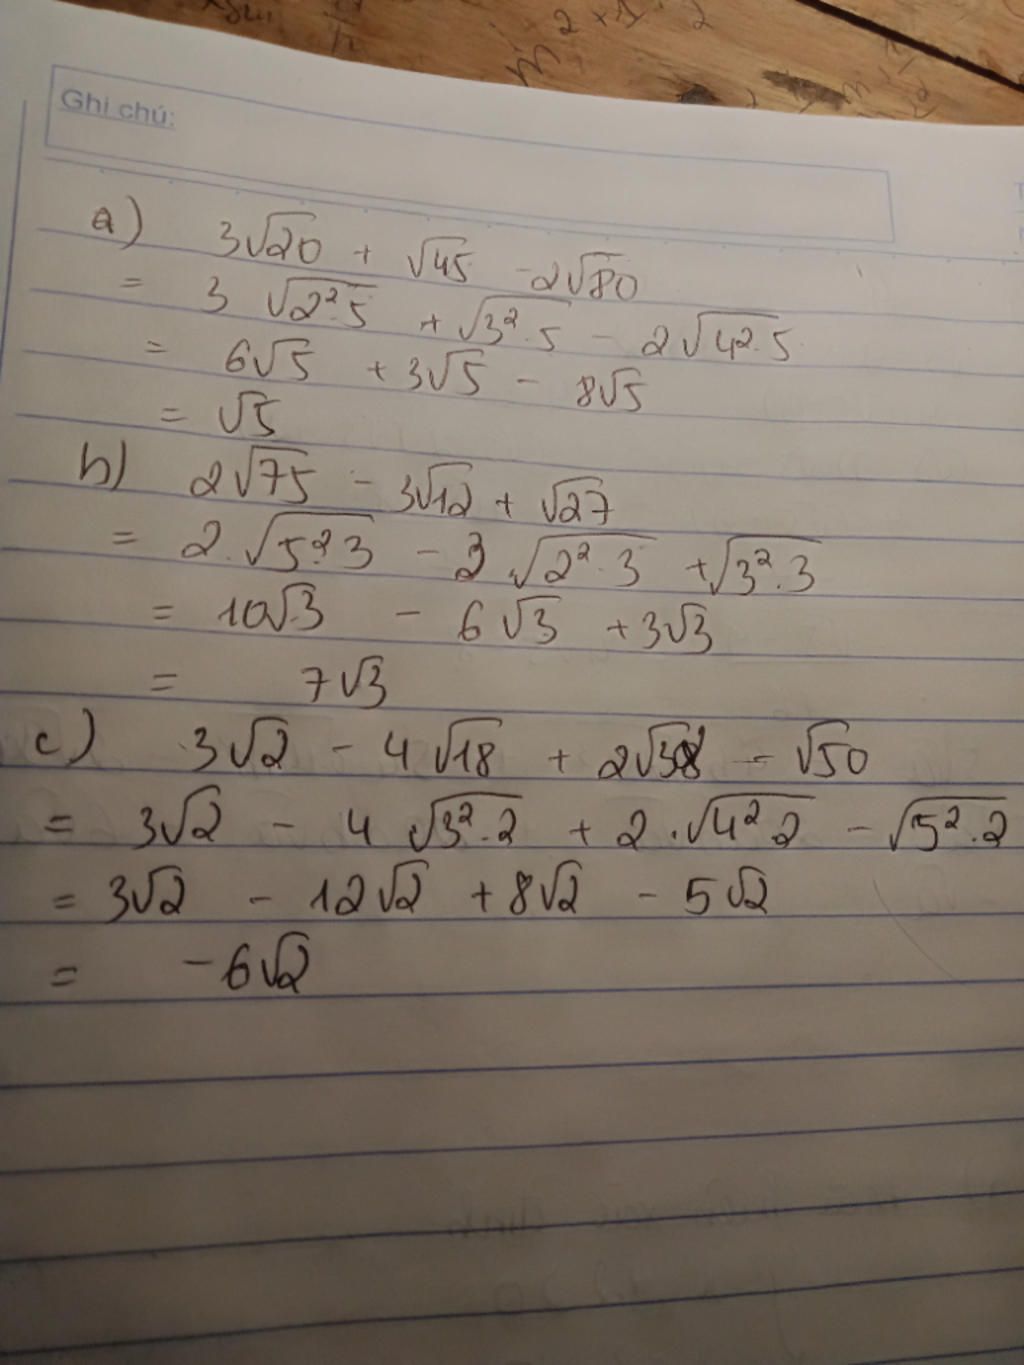 Ghi chú:
a) 3√20 + √45 - 2√80
= 3 √2².5 + √3².5 - 2√4².5
= 6√5 + 3√5 - 8√5
= √5
b) 2√75 - 3√12 + √27
= 2.√5².3 - 3 .√2².3 + √3².3
= 10√3 - 6√3 + 3√3
= 7√3
c) 3√2 - 4√18 + 2√32 - √50
= 3√2 - 4 √3².2 + 2.√4².2 - √5².2
= 3√2 - 12√2 + 8√2 - 5√2
= -6√2